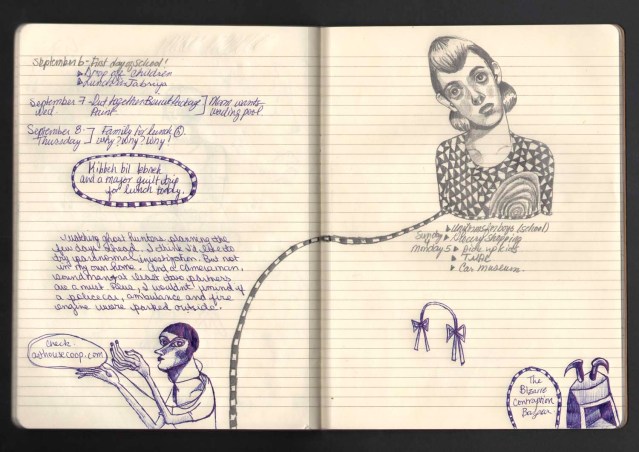 September 6 - First day of school!
Drop off children
Lunch
September 7 - Put together Package
Wed. Paint
Mom wants wading pool
September 8 - Family for lunch
Thursday Why? Why? Why?
Kibbeh bil
and a major guilt trip
for lunch today.
Watching ghost hunters, planning the
few days ahead. I think I'd like to
try paranormal investigation. But not
in my own home. And a cameraman,
sound man, at least two partners
are a must. Plus, I wouldn't mind if
a police car, ambulance and fire
engine were parked outside.
Check:
arthousecoop.com
Uniforms for boys (school)
Sunday Grocery shopping
Monday 5 Pick up kids
Car museum
The
Bizarre
Contraption
Bazaar